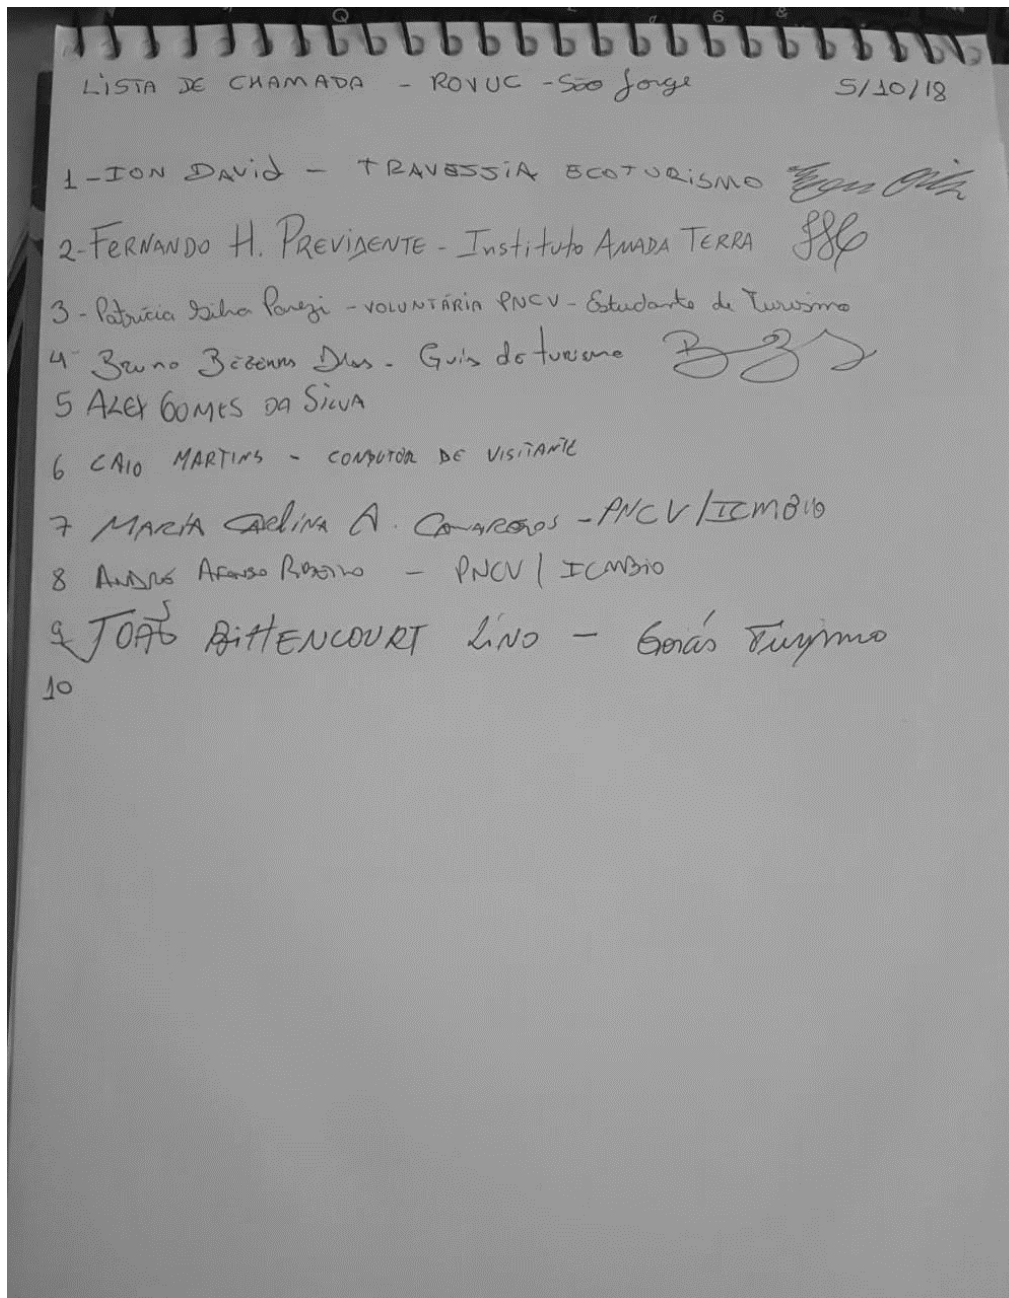 LISTA DE CHAMADA - ROVUC - São Jorge 5/10/18
1 - ION DAVID - TRAVESSIA ECOTURISMO
2 - FERNANDO H. PREVIDENTE - Instituto AMADA TERRA
3 - Patrícia Silva - VOLUNTÁRIA PNCV - Estudante de Turismo
4 - Bruno Dias - Guia de turismo
5 ALEX GOMES DA SILVA
6 CAIO MARTINS - CONDUTOR DE VISITANTE
7 MARIA CAROLINA A. - PNCV/ICMBio
8 ANDRÉ AFONSO RIBEIRO - PNCV / ICMBio
9 JOÃO BITTENCOURT LINO - Goiás Turismo
10